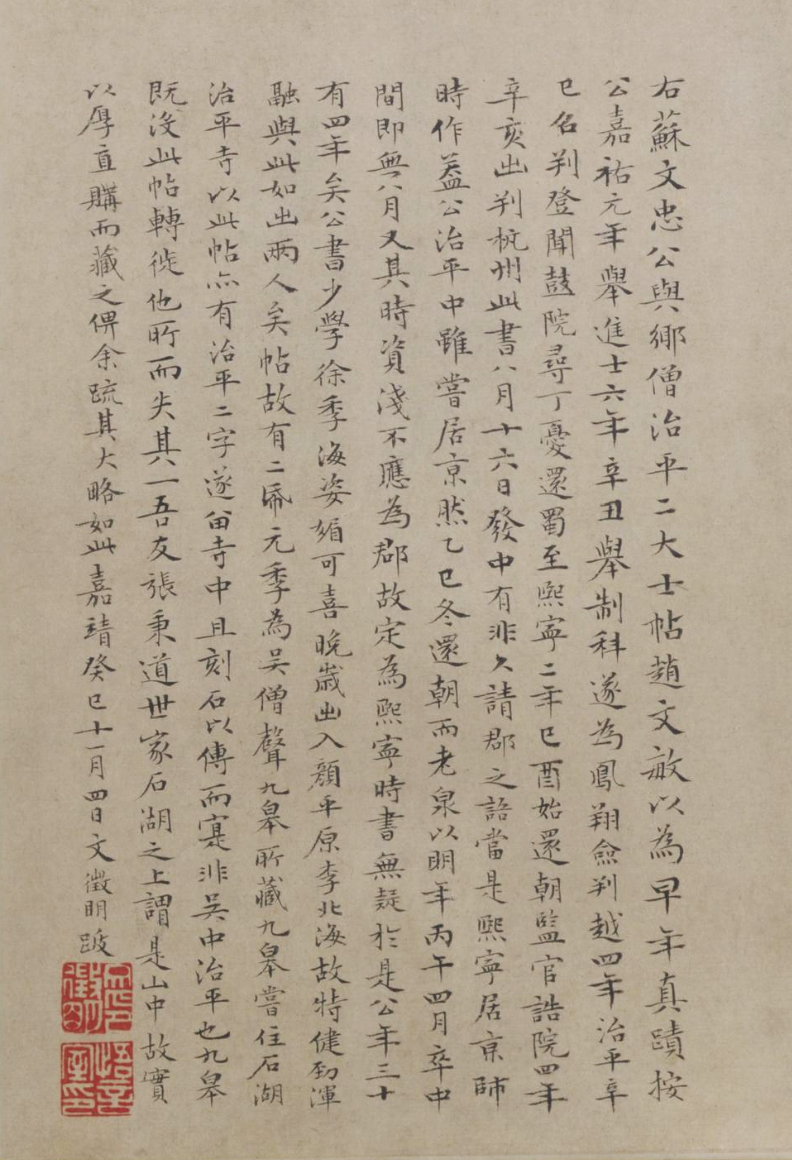 右蘇文忠公與鄉僧治平二大士帖趙文敏以為早年真蹟按
公嘉祐元年舉進士六年辛丑舉制科遂為鳳翔僉判越四年治平辛
巳名判登聞鼓院尋丁憂還蜀至熙寧二年己酉始還朝監官誥院四年
辛亥出判杭州此書八月十六日發中有非久請郡之語當是熙寧居京師
時作蓋公治平中雖嘗居京然乙巳冬還朝而老泉以明年丙午四月卒中
間即無八月又其時資淺不應為郡故定為熙寧時書無疑於是公年三十
有四年矣公書少學徐季海姿媚可喜晚歲出入顏平原李北海故特健勁渾
融與此如出兩人矣帖故有二帋元季為吳僧聲九皋所藏九皋嘗住石湖
治平寺以此帖亦有治平二字遂留寺中且刻石以傳而寔非吳中治平也九皋
既沒此帖轉徙他所而失其一吾友張秉道世家石湖之上謂是山中故實
以厚直購而藏之俾余疏其大略如此嘉靖癸巳十一月四日文徵明跋
徵明印
悟言室印